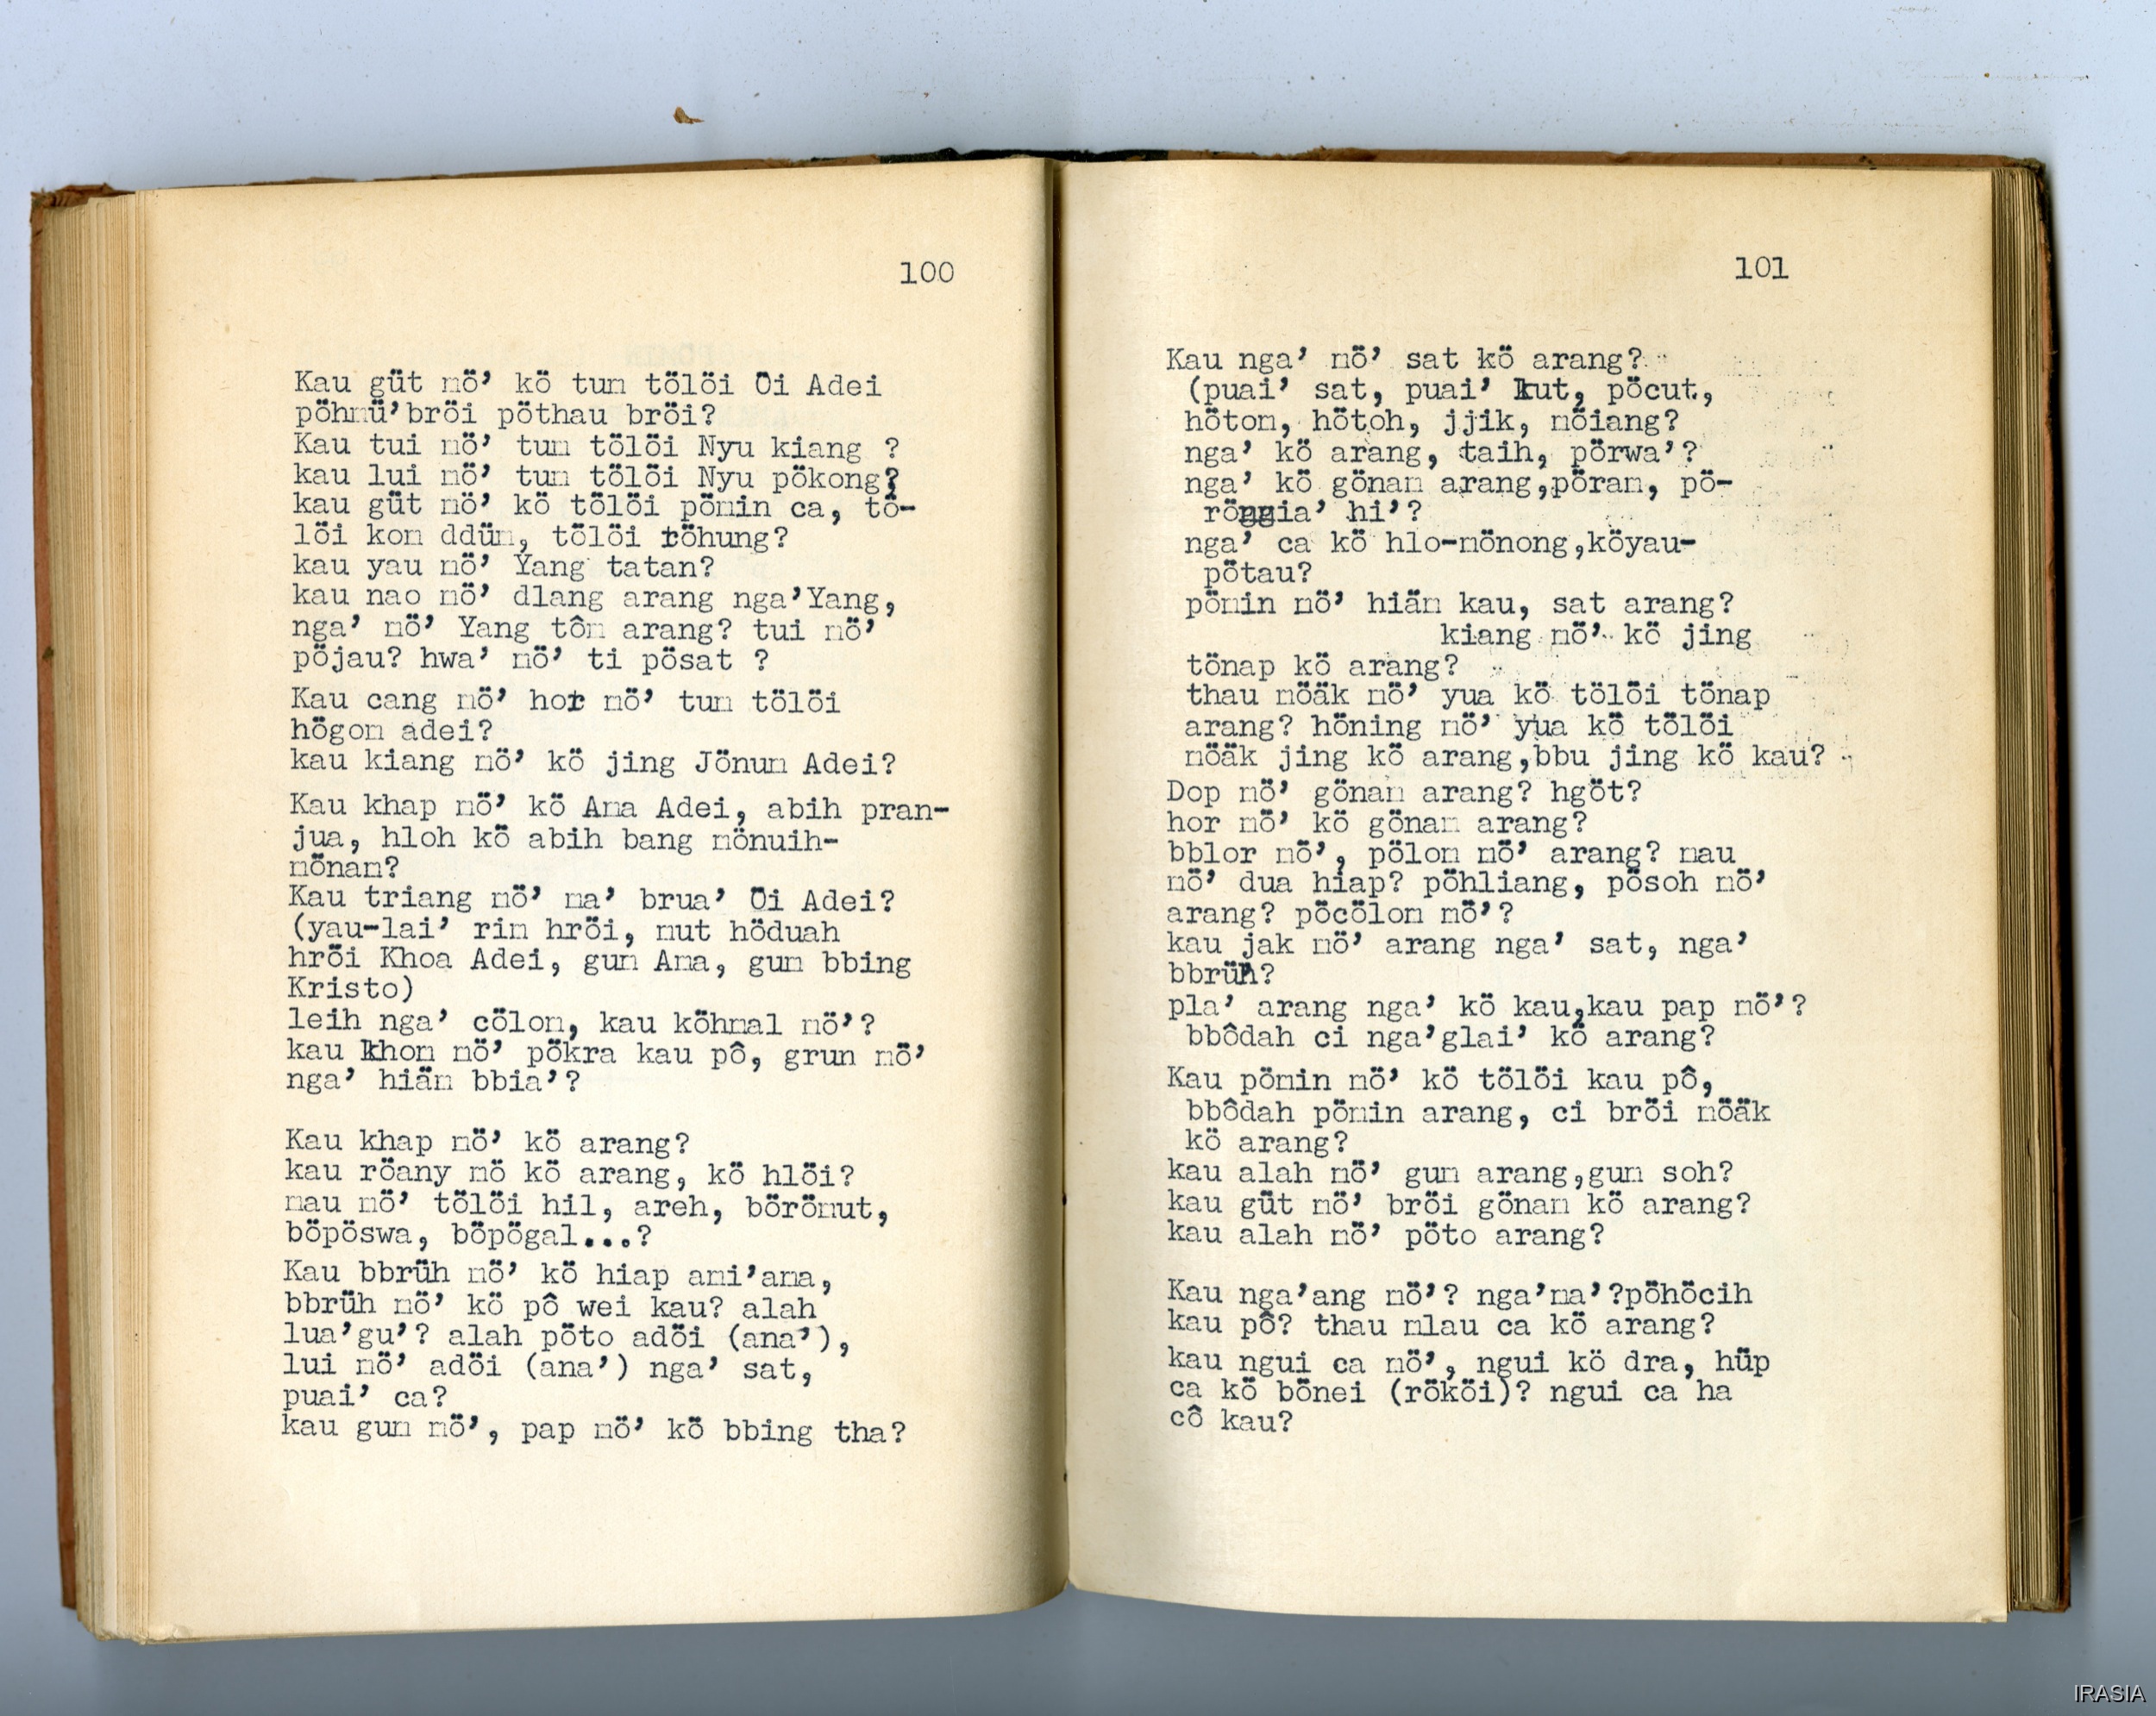 100
Kau güt mö’ kö tum tölöi Oi Adei
pöhmü’bröi pöthau bröi?
Kau tui mö’ tum tölöi Nyu kiang ?
kau lui mö’ tum tölöi Nyu pökong?
kau güt mö’ kö tölöi pömin ca, tö-
löi kom ddüm, tölöi röhung?
kau yau mö’ Yang tatan?
kau nao mö’ dlang arang nga’Yang,
nga’ mö’ Yang tôm arang? tui mö’
pöjau? hwa’ mö’ ti pösat ?
Kau cang mö’ hor mö’ tum tölöi
högom adei?
kau kiang mö’ kö jing Jönum Adei?
Kau khap mö’ kö Ama Adei, abih pran-
jua, hloh kö abih bang mönuih-
mönam?
Kau triang mö’ ma’ brua’ Oi Adei?
(yau-lai’ rim hröi, mut höduah
hröi Khoa Adei, gum Ama, gum bbing
Kristo)
leih nga’ cölom, kau köhmal mö’?
kau khom mö’ pökra kau pô, grun mö’
nga’ hiäm bbia’?
Kau khap mö’ kö arang?
kau röany mö kö arang, kö hlöi?
mau mö’ tölöi hil, areh, börömut,
böpöswa, böpögal...?
Kau bbrüh mö’ kö hiap ami’ama,
bbrüh mö’ kö pô wei kau? alah
lua’gu’? alah pöto adöi (ana’),
lui mö’ adöi (ana’) nga’ sat,
puai’ ca?
kau gum mö’, pap mö’ kö bbing tha?
101
Kau nga’ mö’ sat kö arang?
(puai’ sat, puai’ kut, pöcut,
hötom, hötoh, jjik, möiang?
nga’ kö arang, taih, pörwa’?
nga’ kö gönam arang,pöram, pö-
rönggia’ hi’?
nga’ ca kö hlo-mönong,köyau-
pötau?
pömin mö’ hiäm kau, sat arang?
kiang mö’ kö jing
tönap kö arang?
thau möäk mö’ yua kö tölöi tönap
arang? höning mö’ yua kö tölöi
möäk jing kö arang,bbu jing kö kau?
Dop mö’ gönam arang? hgöt?
hor mö’ kö gönam arang?
bblor mö’, pölom mö’ arang? mau
mö’ dua hiap? pöhliang, pösoh mö’
arang? pöcölom mö’?
kau jak mö’ arang nga’ sat, nga’
bbrüh?
pla’ arang nga’ kö kau,kau pap mö’?
bbôdah ci nga’glai’ kö arang?
Kau pömin mö’ kö tölöi kau pô,
bbôdah pömin arang, ci bröi möäk
kö arang?
kau alah mö’ gum arang,gum soh?
kau güt mö’ bröi gönam kö arang?
kau alah mö’ pöto arang?
Kau nga’ang mö’? nga’ma’?pöhöcih
kau pô? thau mlau ca kö arang?
kau ngui ca mö’, ngui kö dra, hüp
ca kö bönei (rököi)? ngui ca ha
cô kau?
IRASIA